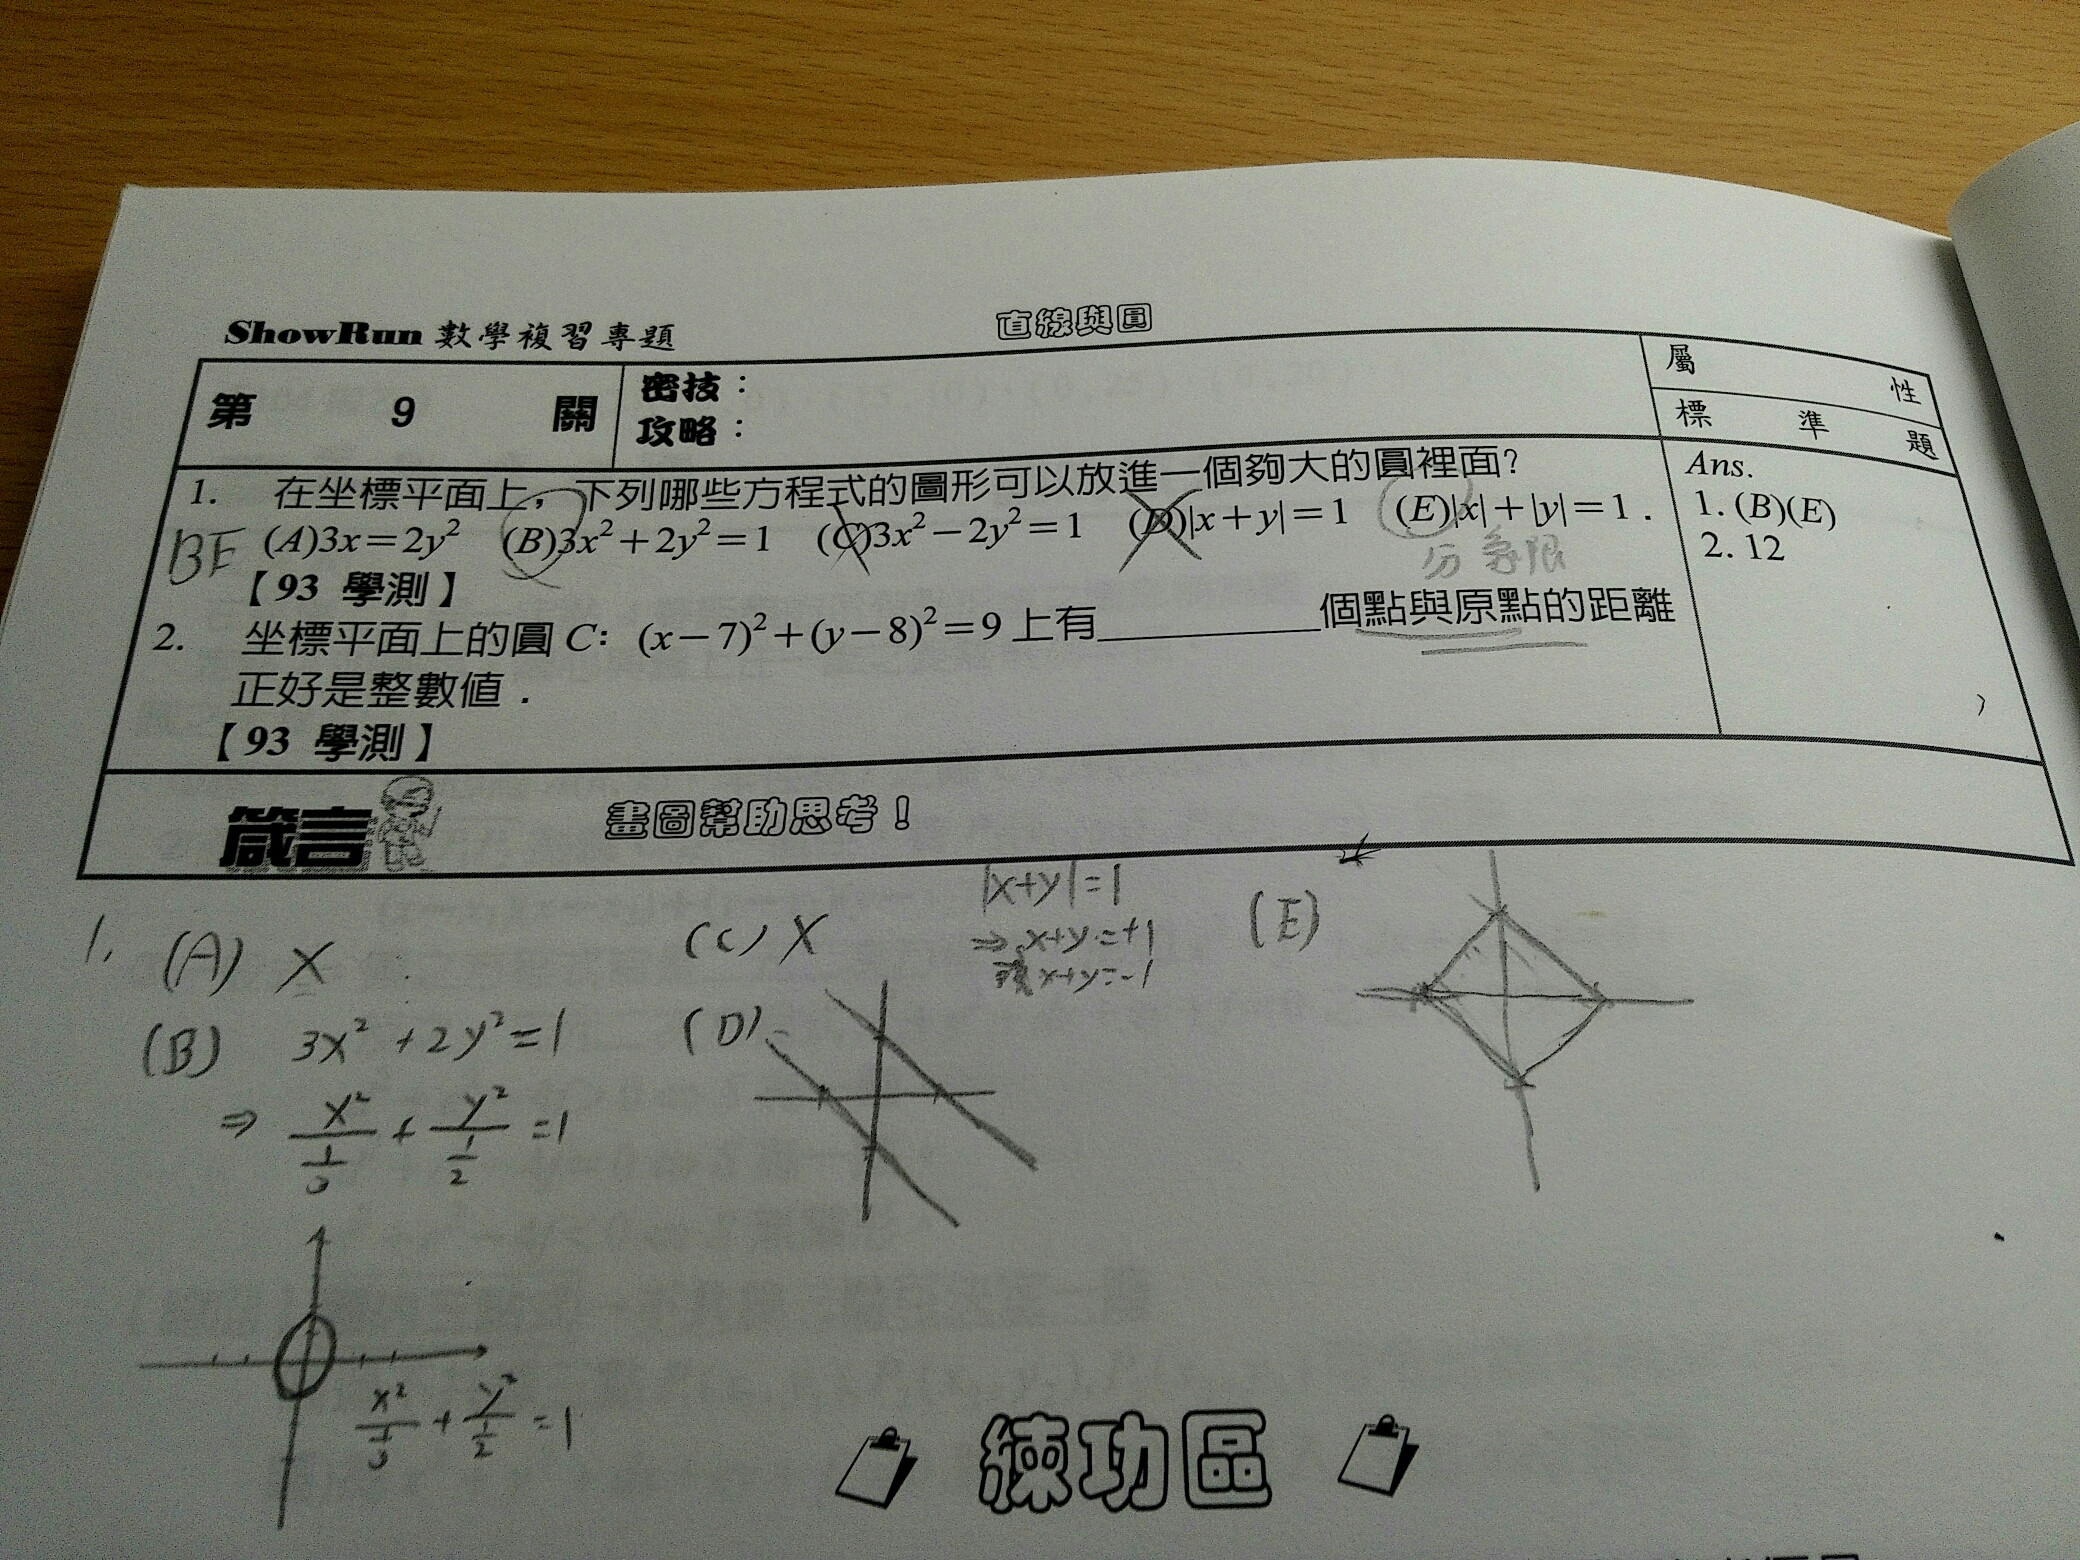 ShowRun 數學複習專題 直線與圓
第 9 關
密技：
攻略：
屬性
標準題
1. 在坐標平面上，下列哪些方程式的圖形可以放進一個夠大的圓裡面？
(A)3x＝2y² (B)3x²＋2y²＝1 (C)3x²－2y²＝1 (D)|x＋y|＝1 (E)|x|＋|y|＝1．
BE
分象限
【93 學測】
2. 坐標平面上的圓 C：(x－7)²＋(y－8)²＝9 上有__________個點與原點的距離
正好是整數值．
【93 學測】
Ans.
1. (B)(E)
2. 12
箴言 畫圖幫助思考！
1. (A) X
(B) 3x²+2y²=1
⇒ x²/(1/3) + y²/(1/2) =1
x²/(1/3) + y²/(1/2) =1
(C) X
(D)
|x+y|=1
⇒ x+y=+1
或 x+y=-1
(E)
練功區